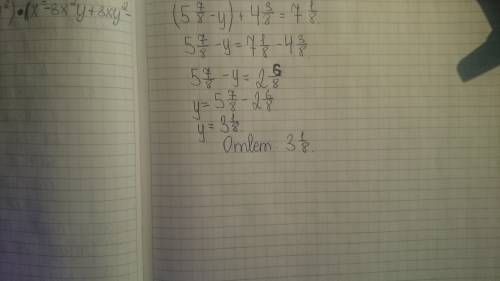 ²)·(x²-3x²y+3xy²-
(5 7/8 - y) + 4 3/8 = 7 1/8
5 7/8 - y = 7 1/8 - 4 3/8
5 7/8 - y = 2 6/8
y = 5 7/8 - 2 6/8
y = 3 1/8
Ответ 3 1/8.